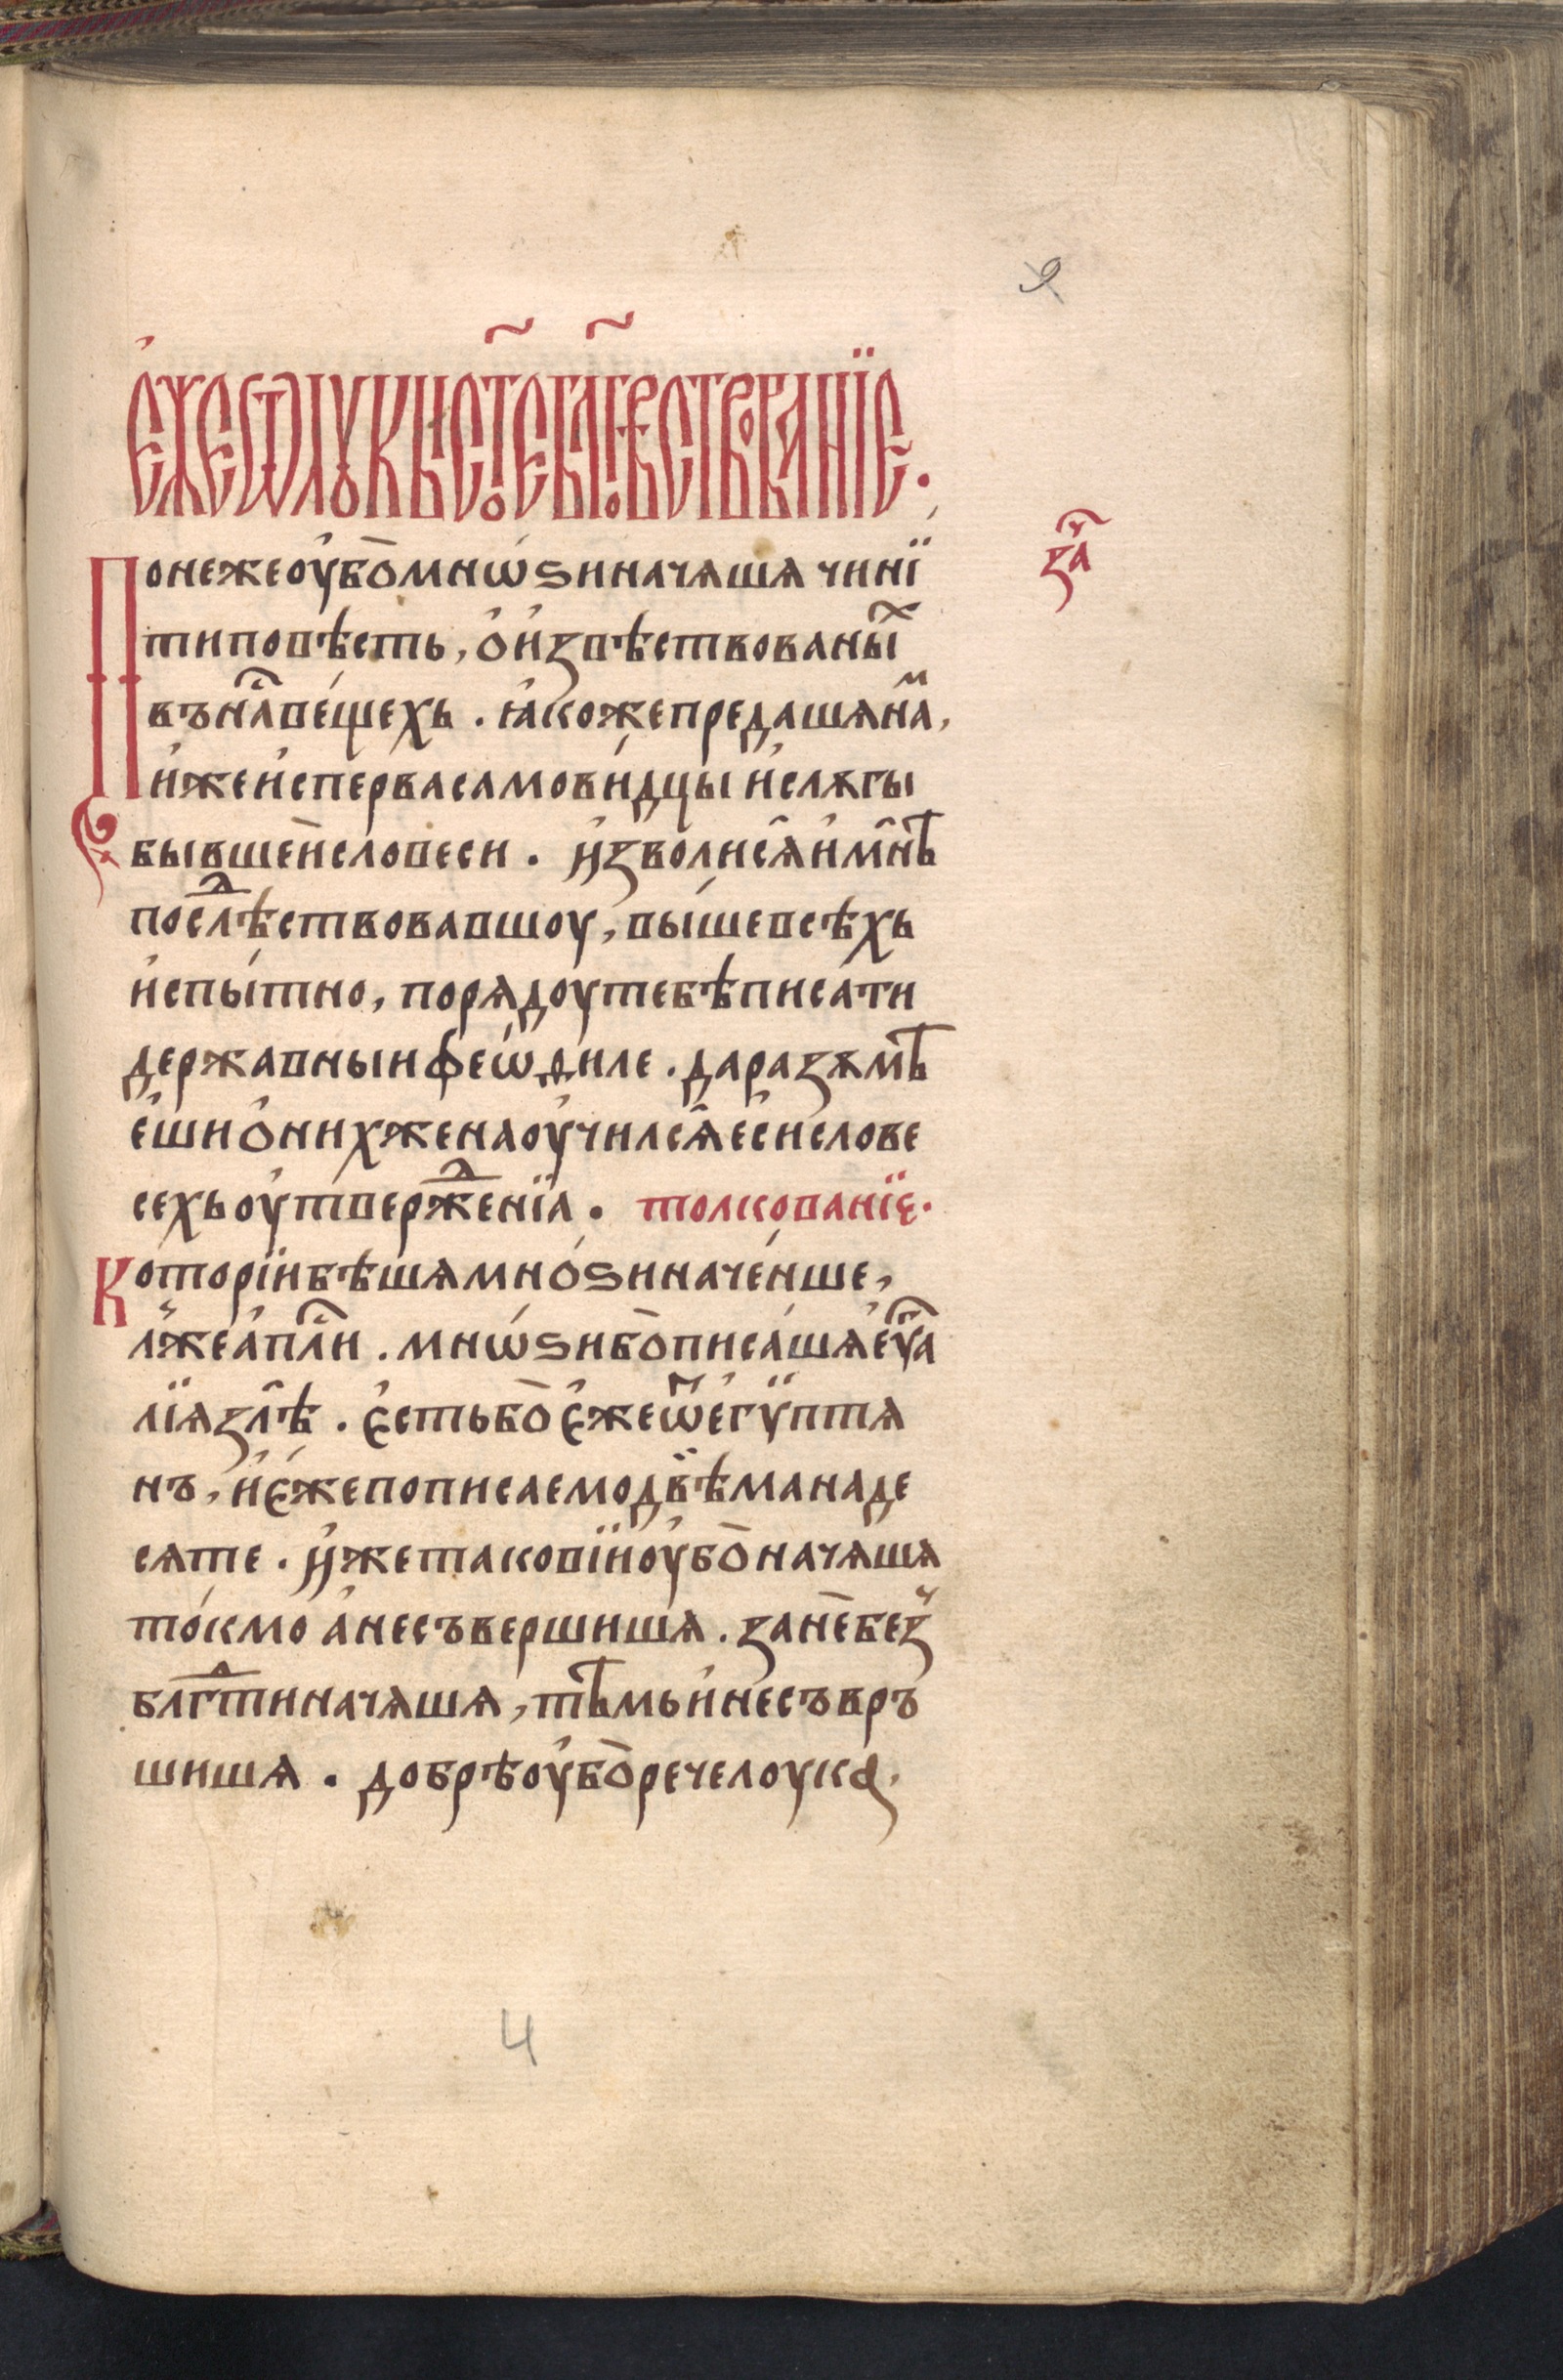 9
є҆жеѿлꙋкыст҃оебл҃говѣствованїе.
понежеоу҆бо̀мнѡ́ѕиначѧшѧ чинї
типовѣсть, ѻ҆и҆звѣствованы́ⷯ
за҄
въна́ⷭ҇вещехь . ꙗ҆кожепредашѧна́ⷨ,
и҆жеи҆спервасамови́дцы и҆слꙋгы
бывшеи҆словеси . и҆зволисѧ̀и҆мнѣ̀
послѣⷣствовавшоу, вы́шевсѣхь
и҆спы́тно, порѧдоутебѣписа́ти
державныи ѳеѡ́ѳиле . даразꙋмѣ
е҆шиѻ҆нихженаоу҆чилсѧ̀е҆сисловє
сехьоу҆твержⷣенїа . толкованїє.
которїибѣшѧмнѻ́ѕиначе́нше,
лⷤжеа҆пⷭ҇ли . мнѡ́ѕибо̀писа́шѧє҆ѵⷢ҇а
лїѧзлѣ̀ . є҆стьбо̀є҆жеѿе҆гѵ́птѧ
нъ, и҆є҆жепописаемодвѣманаде
сѧте . и҆жетаковїи́оу҆бо̀начѧшѧ
то́кмо а҆несъвершишѧ . занѐбеⷥ
блгⷣтиначѧшѧ, тѣмьи҆несъвръ
шишѧ . добрѣоу҆бо̀речелоука.
4